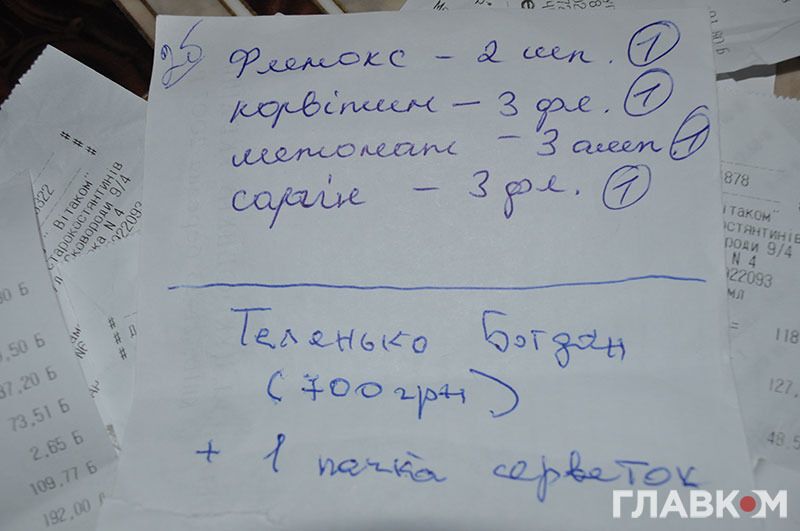 25
Флемокс – 2 шп. 1
корвітин – 3 фл. 1
метонат – 3 амп 1
саргін – 3 фл. 1
Теленько Богдан
(700грн)
+ 1 пачка серветок
322
" Вітаком"
старокостянтинів
Сковороди 9/4
ка N 4
022093
###
,50 Б
37.20 Б
73,51 Б
2.65 Б
109.77 Б
192,00
1878
Вітаком"
СТЯНТИНІВ
роди 9/4
N 4
022093
МЛ
118
127,
48.5
ГЛАВКОМ